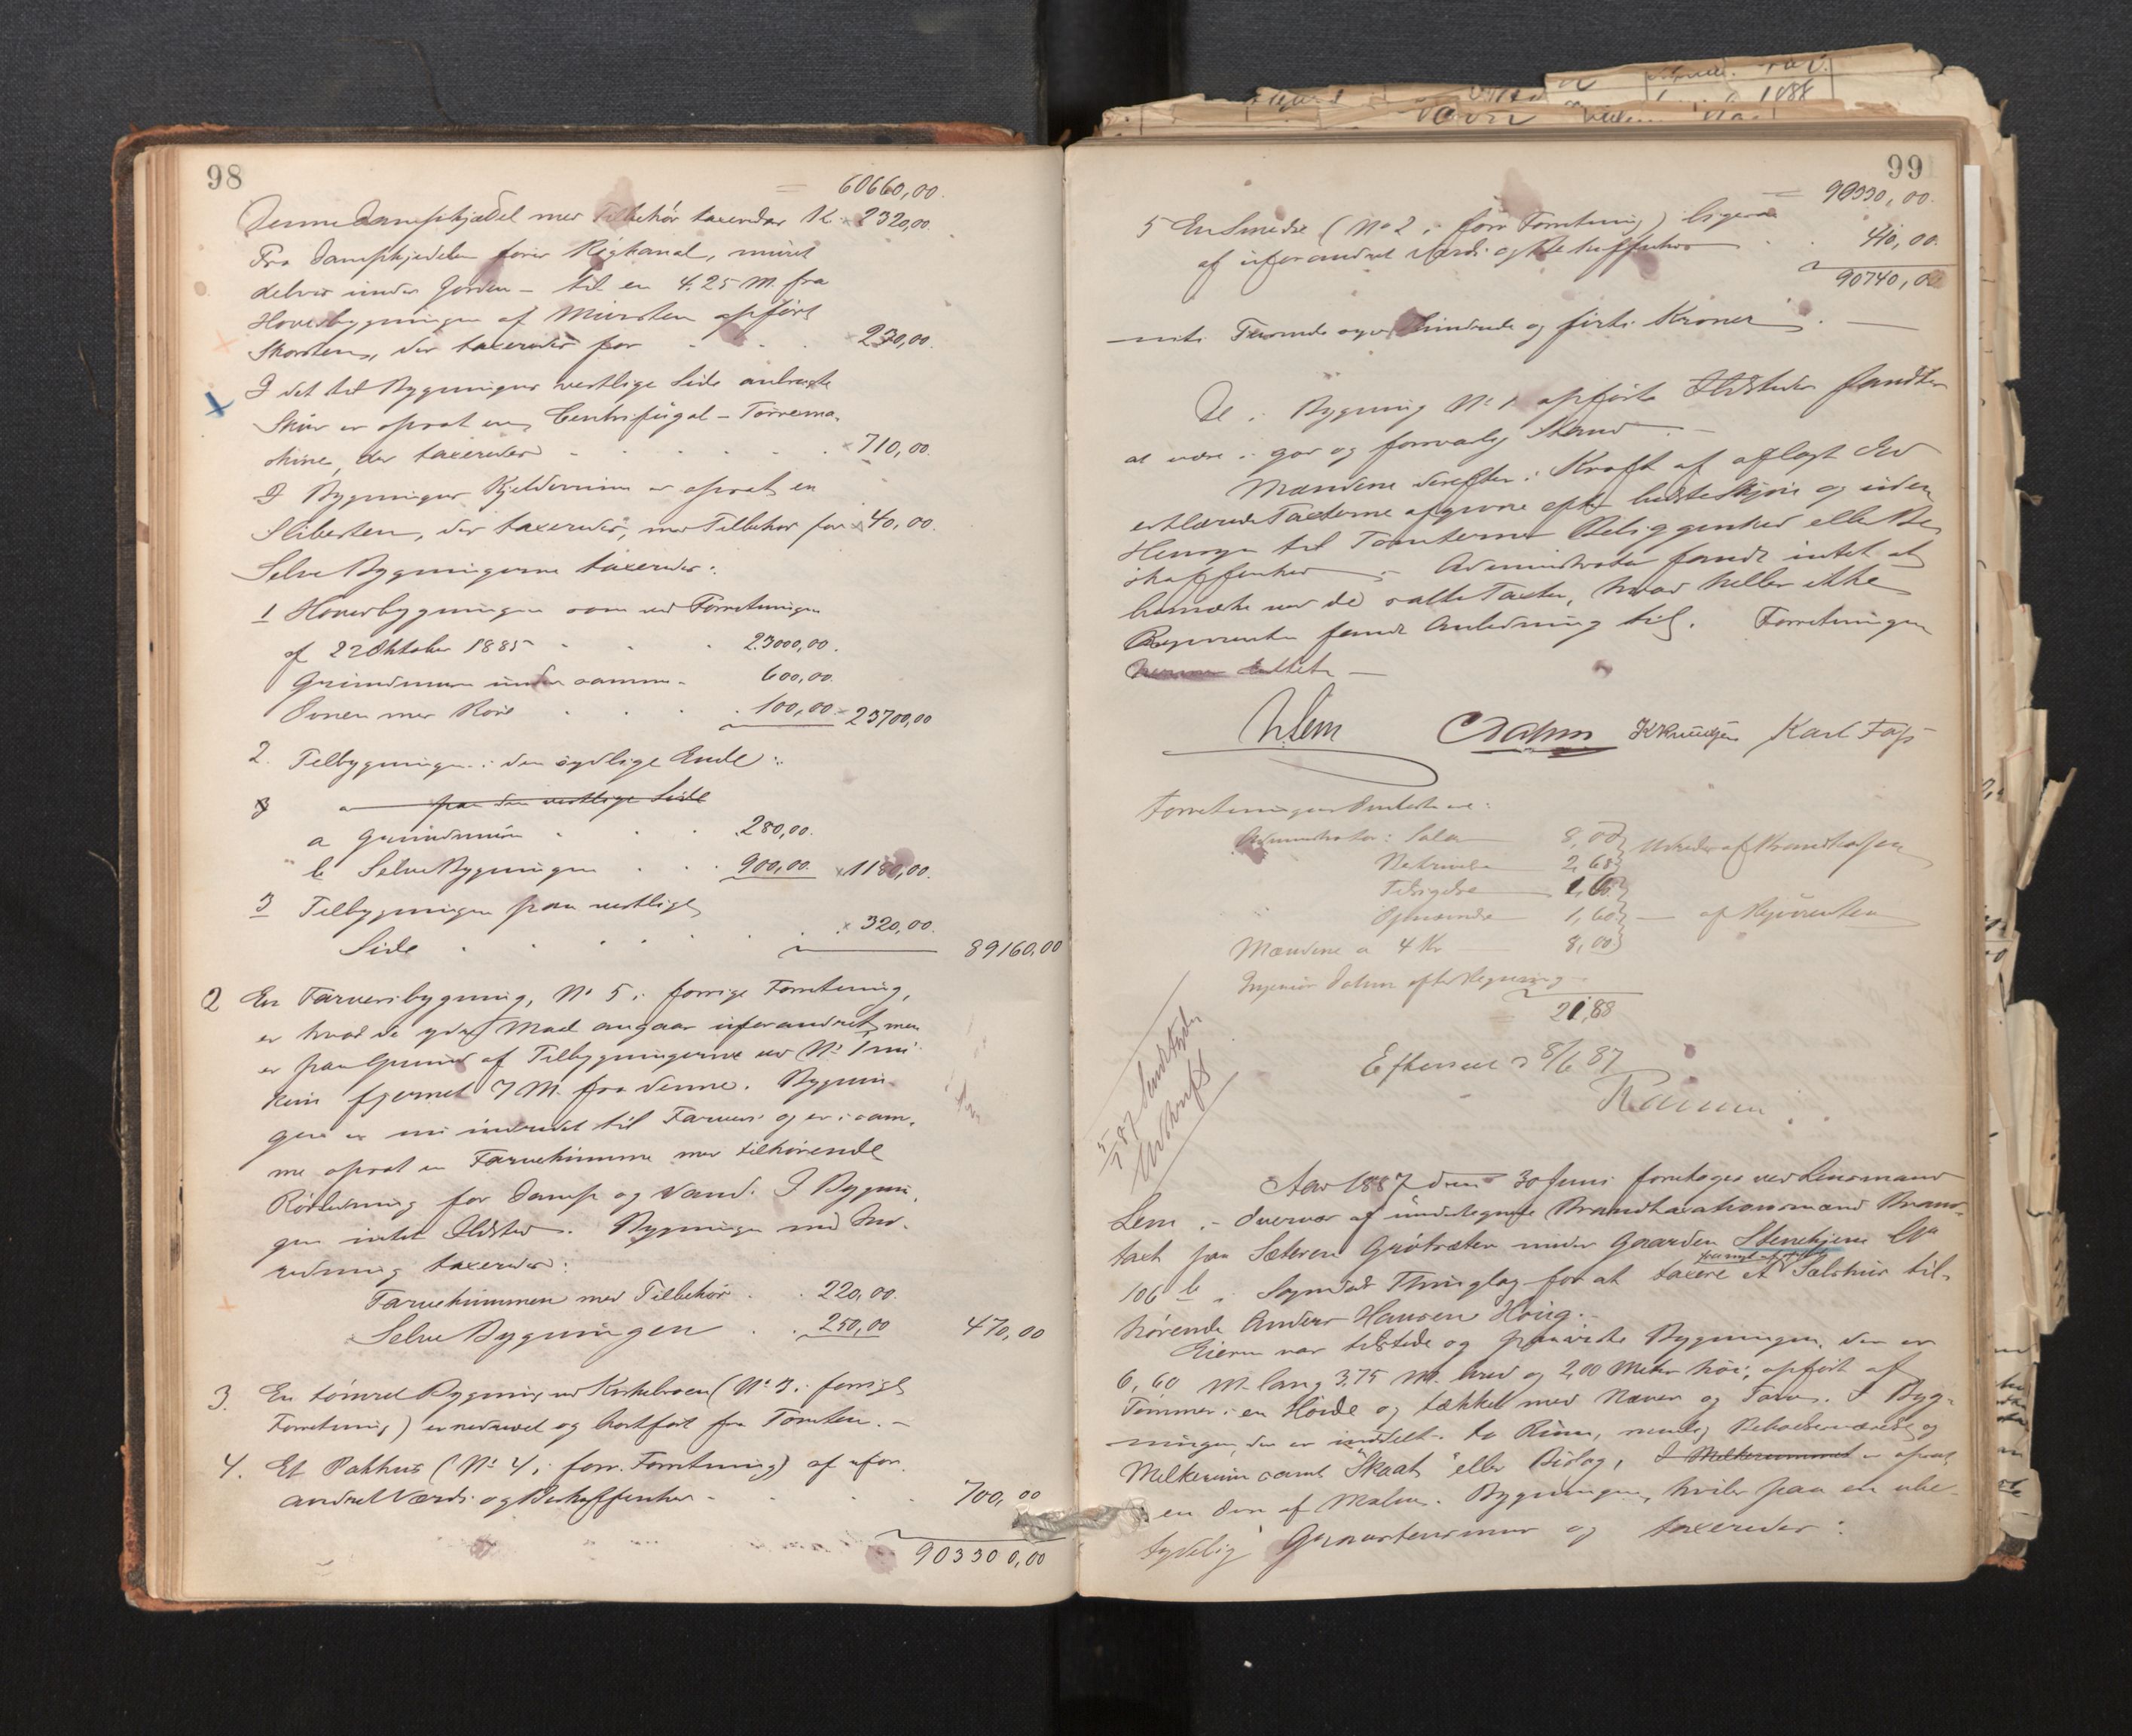 98
60660,00.
Denne Dampkjædel med Tilbehör taxeredes Kr. 2320,00.
Fra Dampkjedelen fører Røgkanal, muret
delvis under Jorden - til en 4.25 M. fra
Hovedbygningen af Mursten opført
Skorsten, der taxeredes for 230,00.
I det ved Bygningens vestlige Side anbragte
Skur er opsat en Centrifugal-Törrema-
skine, der taxeredes 710,00.
I Bygningens Kjelderrum er opsat en
Slibesten, der taxeredes, med Tilbehør for 40,00.
Selve Bygningerne taxeredes:
1 Hovedbygningen som ved Forretningen
af 22 Oktober 1885 23000,00.
Grundmuren under samme - 600,00.
Ovnen med Rör 100,00 - 23700,00
2. Tilbygningen i den sydlige Ende:
3 a paa den vestlige Side
a Grundmuren 280,00.
b Selve Bygningen 900,00. 1180,00.
3 Tilbygningen paa vestlige
Side 320,00.
89160,00
2 En Farveribygning, No 5 i forrige Forretning,
er hvad de ydre Maal angaar uforandret, men
er paa Grund af Tilbygningerne ved No 1 nu
kun fjernet 7 M. fra denne. Bygnin-
gen er nu indredet til Farveri og er i sam-
me opsat en Farvekumme med tilhørende
Rörledning for Damp og Vand. I Bygnin-
gen intet Ildsted. Bygningen med Ind-
redning taxeredes:
Farvekummen med Tilbehör 220,00.
Selve Bygningen 250,00 470,00
3. En tömret Bygning ved Kirkebroen (No 3 i forrige
Forretning) er nedrevet og bortført fra Tomten. -
4. Et Pakhus (No 4 i forr. Forretning) af ufor-
andret Værdi og Beskaffenhed - 700,00
903300,00
99
90330,00.
5 En Smedie (No 2 i forr Forretning) ligesaa
af uforandret Værdi og Beskaffenhed 410,00.
90740,00
nitti Tusinde syv hundrede og firti Kroner.
De i Bygning No 1 opførte Ildsteder fandtes
at være i god og forsvarlig Stand. -
Mændene derefter i Kraft af aflagt Ed
erklærede Taxterne afgivne efter bedste Skjøn og uden
Hensyn til Tomternes Beliggenhed eller Be-
skaffenhed. - Administrator fandt intet at
bemærke ved de satte Taxter, hvad heller ikke
Rekvirenten fandt Anledning til. Forretningen
hermed sluttet. -
N. Lem C Dahm K Knudsen Karl Fos
Forretningens Omkostninger:
Administrator: Salær 8,00 Udredes af Brandkassen
Netringelse 2,68
Tilsigelse 1,60
Opnævnelse 1,60 - af Rekvirenten
Mændene a 4 Kr 8,00
Ingeniør Dahm efter Regning
21,88
Efterseet d 8/6 87
5/7 87 Indsendt
Udskrift
Aar 1887 den 30 Juni foretoges ved Lensmand
Lem i Overvær af undertegnede Brandtaxationsmænd Brand-
taxt paa Sæteren Grótsæter under Gaarden Stenehjem
106 b i Sogndal Thinglag for at taxere et Sælshus til-
hørende Anders Hansen Houg. -
Eieren var tilstede og paaviste Bygningen, der er
6,60 M lang 3,75 M. bred og 2,00 Meter höi, opført af
Tömmer i en Höide og tækket med Næver og Torv. I Byg-
ningen, der er inddelt i to Rum, nemlig Beboelsesværelse og
Melkerum samt "Skaat" eller Bislag, I Melkerummet er opsat
en Ovn af Malm. Bygningen, hviler paa en ube-
tydelig Graastensmur og taxeredes: